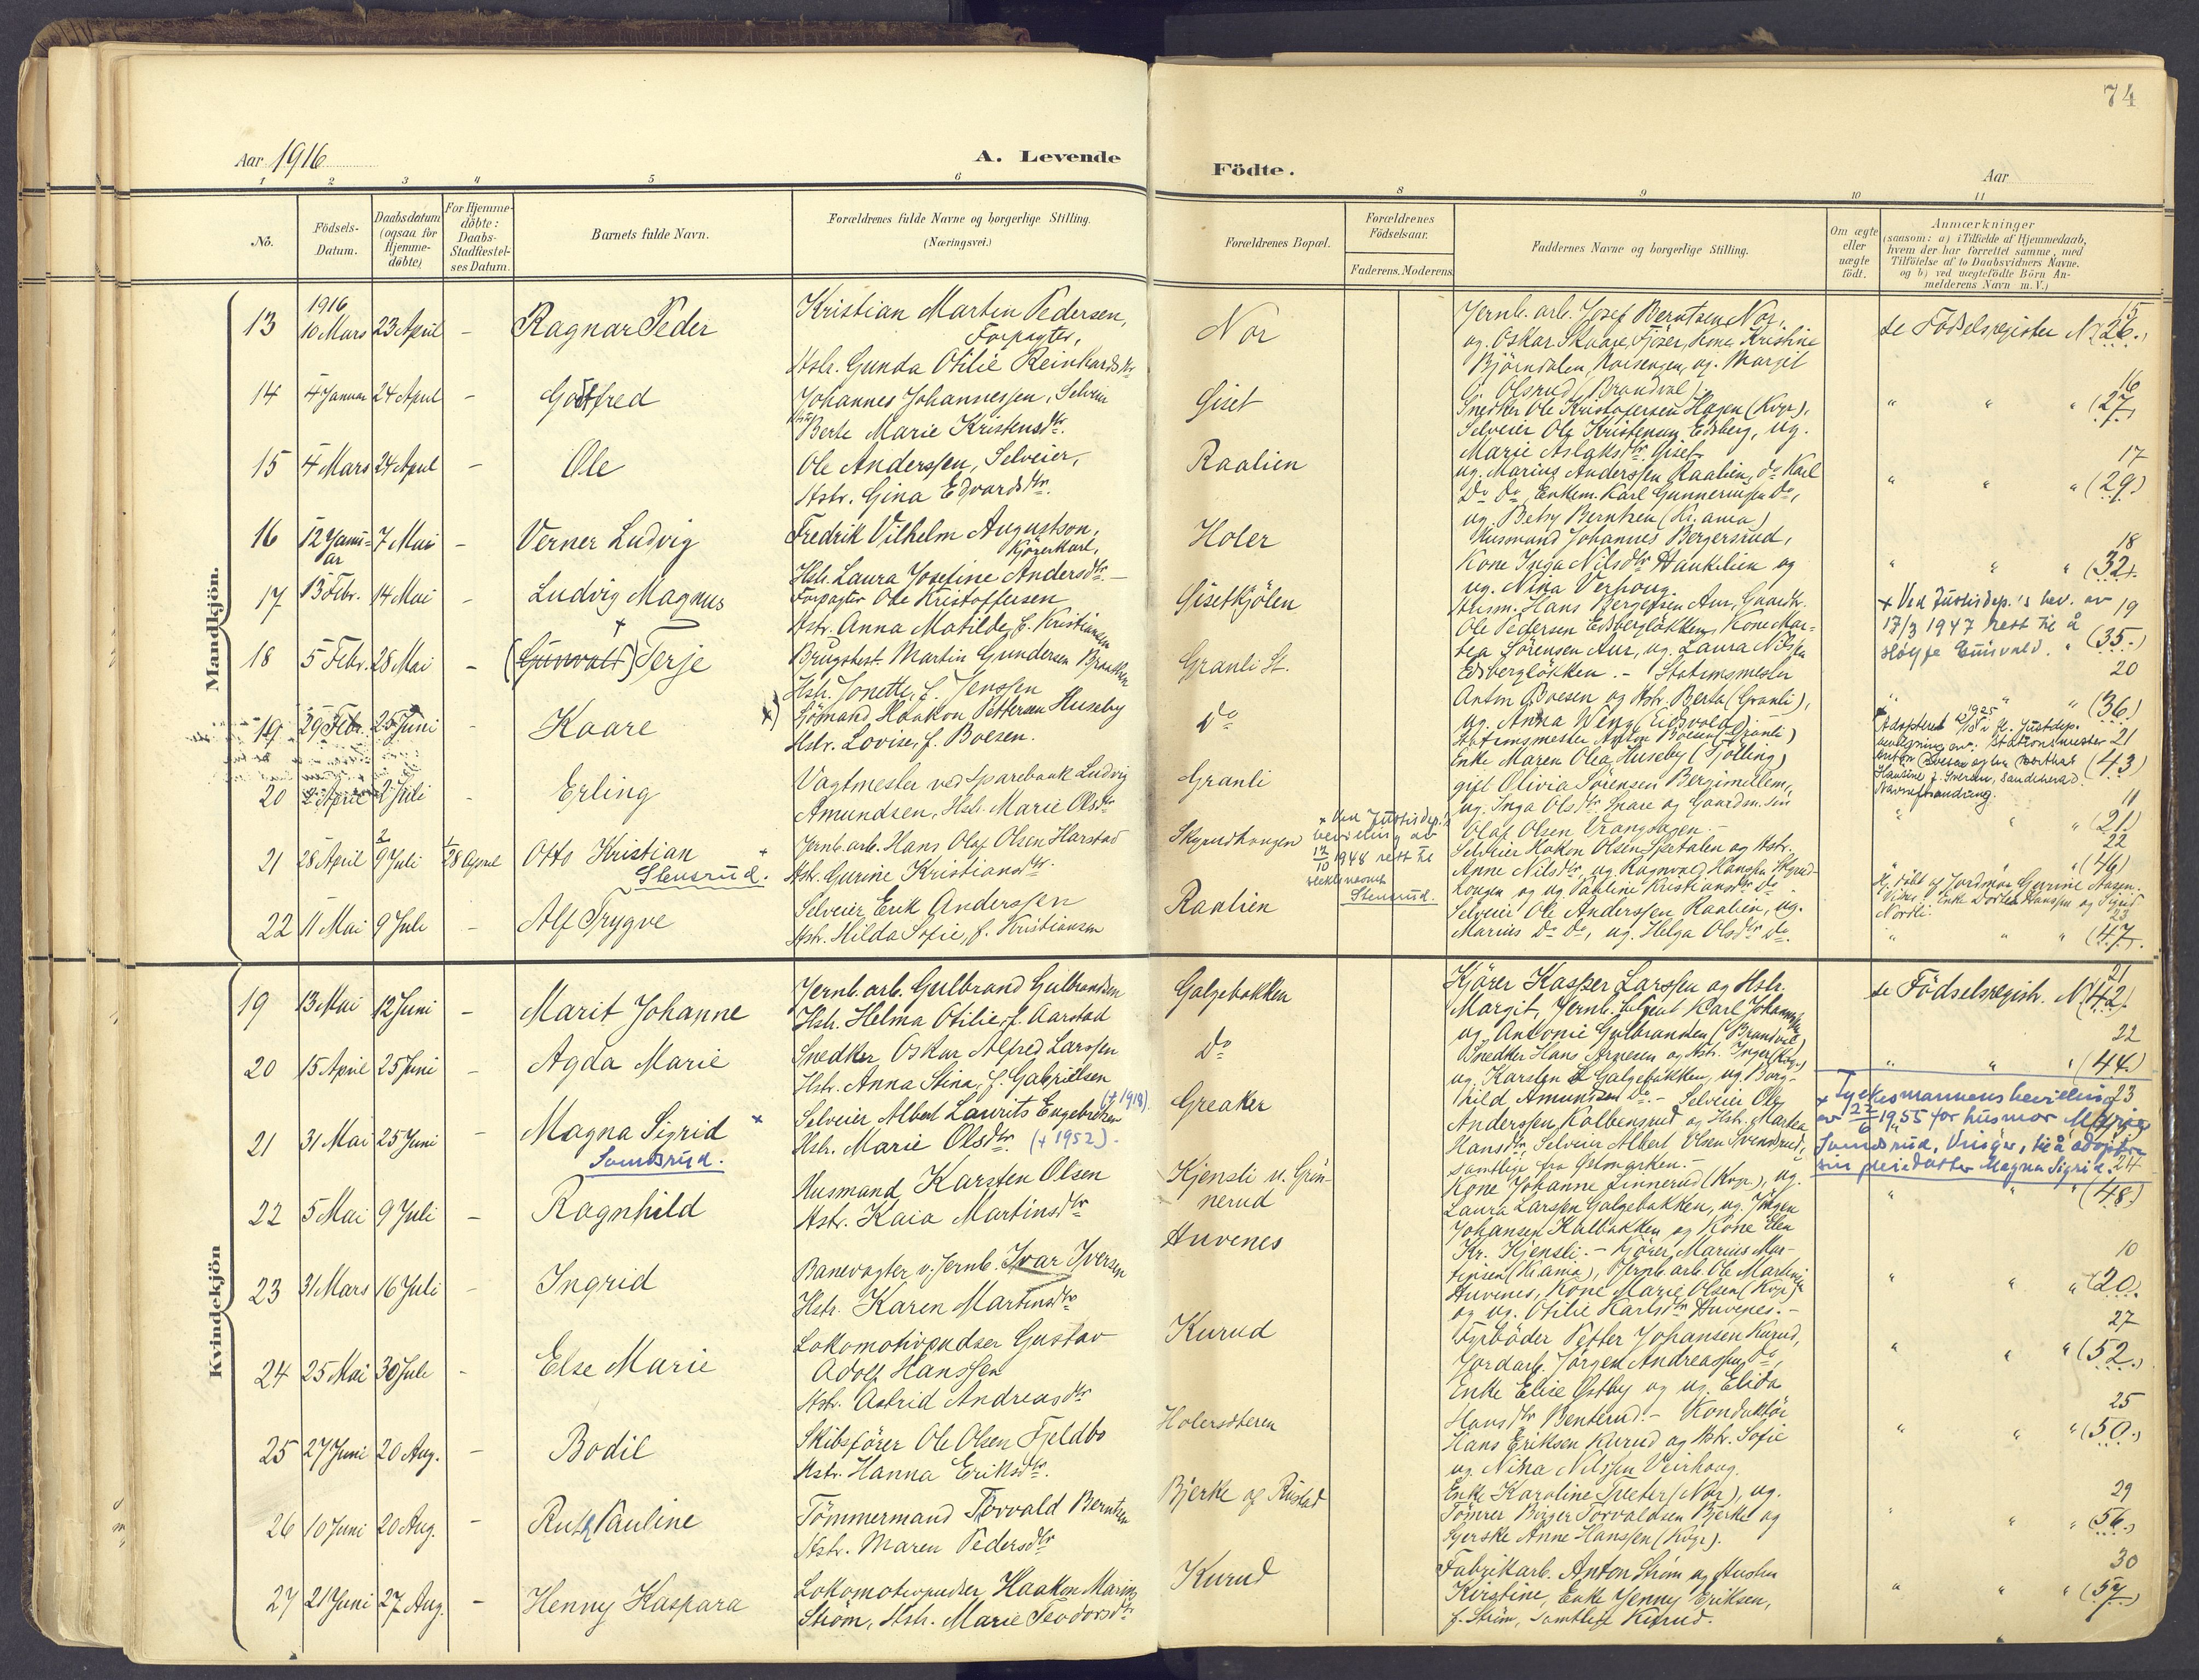 74
Aar 1916
A. Levende
Födte.
Aar
1 2 3 4 5 6 8 9 10 11
No.
Födsels-Datum.
Daabsdatum (ogsaa for Hjemme-döbte)
For Hjemme-döbte: Daabs-Stadfæstel-ses Datum.
Barnets fulde Navn.
Forældrenes fulde Navne og borgerlige Stilling.
(Næringsvei.)
Forældrenes Bopæl.
Forældrenes Födselsaar.
Faderens. Moderens
Faddernes Navne og borgerlige Stilling.
Om ægte eller uægte födt.
Anmærkninger
(saasom: a) i Tilfælde af Hjemmedaab,
hvem der har forrettet samme, med
Tilföielse af to Daabsvidners Navne.
og b) ved uægtefödte Börn An-
melderens Navn m. V.)
Mandkjön.
1916
13 10 Mars 23 April - Ragnar Peder
Kristian Martin Pedersen,
Forpagter,
Hstr. Gunda Otilie Reinhardsdtr
Nor
Jernb. arb. Josef Berntsen Nor,
ug. Oskar Skaare, Fjöser, Kone Kristine
Björndalen, Norsengen, ug. Margit
O. Olsrud (Brandval).
se Födselsregister N 15 (26.)
14 4 Januar 24 April - Gotfred
Johannes Johannessen, Selveier
Hstr. Berte Marie Kristensdtr.
Giset
Snedker Ole Kristofersen Hagen (Kvgr.),
Selveier Ole Kristensen Edsberg, ug.
Marie Aslaksdtr. Giset
" " " 16 (27)
15 4 Mars 24 April - Ole
Ole Anderssen, Selveier,
Hstr. Gina Edvardsdtr.
Raalien
ug. Marius Anderssen Raalien, do Karl
Do Do, Enkem. Karl Gunneriussen Do,
ug. Betsy Berntzen (Kr.ania)
" " " 17 (29)
16 12 Janu-ar 7 Mai - Verner Ludvig
Fredrik Vilhelm Augustson,
Kjörerkarl,
Hstr. Laura Josefine Andersdtr. -
Holer
Husmand Johannes Bergersrud,
Kone Inga Nilsdtr Haukilien og
ug. Nina Verhoug.
" " " 18 (32).
17 13 Febr. 14 Mai - Ludvig Magnus
Forpagter Ole Kristoffersen
Hstr. Anna Matilde, f. Kristiansen
Gisetkjölen
Husm. Hans Bergersen Aur, Gaardbr.
Ole Pedersen Edsberglökken, Kone Mar-
tea Sörensen Aur, ug. Laura Nilssen
Edsberglökken. -
19 (35.)
18 5 Febr. 28 Mai - (Gunvald) Terje
Brugsbest. Martin Gundersen Braathen
Hstr. Jonette, f. Jenssen
Granli St.
Stationsmester
Anton Boesen og Hstr. Berta (Granli),
ug. Anna Wing (Eidsvold)
+ Ved Justisdep.'s bev. av
17/3 1947 rett til å
sløyfe Gunvald.
" " 20 (36)
19 29 Febr. 25 Juni - Kaare
x) Sjömand Haakon Pettersen Huseby
Hstr. Lovise, f. Boesen.
Do
Stationsmester Anton Boesen (Granli)
Enke Maren Olea Huseby (Tjölling)
21 (43)
20 2 April 2 Juli - Erling
Vagtmester ved Sparebank Ludvig
Amundsen, Hstr. Marie Olsdtr
Granli
gift Olivia Sörensen Bergimellem,
ug. Inga Olsdtr Snare og Gaardm. sön
Olaf Olsen Vrangsagen. -
" " " 11 (21)
21 28 April 2/9 Juli 1/28 April Otto Kristian +
Stensrud.
Jernb. arb. Hans Olaf Olsen Harstad
Hstr. Gurine Kristiansdtr.
Skyrudhaugen
+ Ved Justisdep.'s
bevilling av
12/10 1948 rett til
slektsnavnet
Stensrud.
Selveier Hakon Olsen Sætalen og Hstr.
Anne Nilsdtr, ug. Ragnvald Hanssen Skyrud-
hougen og ug. Pauline Kristiansdtr. Do
22 (46)
Hj. döbt af Jordmor Gurine Aasen.
22 11 Mai 9 Juli - Alf Trygve
Selveier Erik Anderssen
Hstr. Hilda Sofie, f. Kristiansen
Raalien
Selveier Ole Anderssen Raalien, ug.
Marius Do Do, ug. Helga Olsdtr Do.
" " " 23 (47).
Kvindekjön
19 13 Mai 12 Juni - Marit Johanne
Jernb. arb. Gulbrand Gulbrandsen
Hstr. Helma Otilie, f. Aarstad
Galgebakken
Kjörer Kasper Larssen og Hstr.
Margit, Jernb. betjent Karl Johanssen
ug. Antonie Gulbrandsen (Brandval)
se Födselsregistr. N 21 (42).
20 15 April 25 Juni - Agda Marie
Snedker Oskar Alfred Larssen
Hstr. Anna Stina, f. Gabrielsen
Do
Snedker Hans Arnesen og Hstr. Inger (Kvgr.)
ug. Karsten L Galgebakken, ug. Borg-
hild Amundsen Do. -
" " " 22 (44)
21 31 Mai 25 Juni - Magna Sigrid x
Sandsrud.
Selveier Albert Laurits Engebretsen (+ 1918).
Hstr. Marie Olsdtr. (+ 1952).
Greaker
Selveier Ole
Anderssen Kolbensrud og Hstr. Martea
Hansdtr, Selveier Albert Olsen Svensrud,
samtlige fra Östmarken. -
x Fylkesmannens bevilling
av 22/6 1955 for husmor Marie
Sandsrud, Vinger, til å adoptere
sin pleiedatter Magna Sigrid.
23
22 5 Mai 9 Juli - Ragnhild
Husmand Karsten Olsen
Hstr. Kaia Martinsdtr
Kjensli u. Grön-
nerud
Kone Johanne Linnerud (Kvgr.), ug.
Laura Larssen Galgebakken, ug. Jörgen
Johansen Kalbakken og Kone Elen
Kr. Kjensli. -
" " 24 (48)
23 31 Mars 16 Juli Ingrid
Banevogter v. Jernb. Ivar Iversen
Hstr. Karen Martinsdtr
Auvenes
Kjörer Marius Mar-
tinsen (Kr.ania), Jernb. arb. Ole Martinsen
Auvenes, Kone Marie Olsen (Kvgr.)
og ug. Otilie Karlsdtr Auvenes. -
" " " 10 (20)
24 25 Mai 30 Juli - Else Marie
Lokomotivpudser Gustav
Adolf Hanssen
Hstr. Astrid Andreasdtr
Kurud
Fyrböder Petter Johansen Kurud,
Jordarb. Jörgen Andreassen Do,
Enke Elise Østby og ug. Elida
Hansdtr Benterud. -
" " " 27 (52.)
25 27 Juni 20 Aug. - Bodil
Skibsförer Ole Olsen Fjeldbo
Hstr. Hanna Eriksdtr.
Holersæteren
Konduktör
Hans Eriksen Kurud og Hstr. Sofie
ug. Nina Nilssen Veirhoug.
" " " 25 (50.)
26 10 Juni 20 Aug. - Ruth Pauline
Tömmermand Torvald Berntsen
Hstr. Maren Pedersdtr
Bjerke og Rustad
Enke Karoline Træter (Nor), ug.
Tömrer Birger Torvaldsen Bjerke og
Syerske Anne Hanssen (Kvgr).
" " " 29 (56.)
27 21 Juni 27 Aug. - Henny Kaspara
Lokomotivpudser Haakon Marius
Ström, Hstr. Marie Teodorsdtr
Kurud
Fabrikarb. Anton Ström og Hustru
Kirstine, Enke Jenny Eriksen,
f. Ström, samtlige Kurud.
" " " 30 (57)